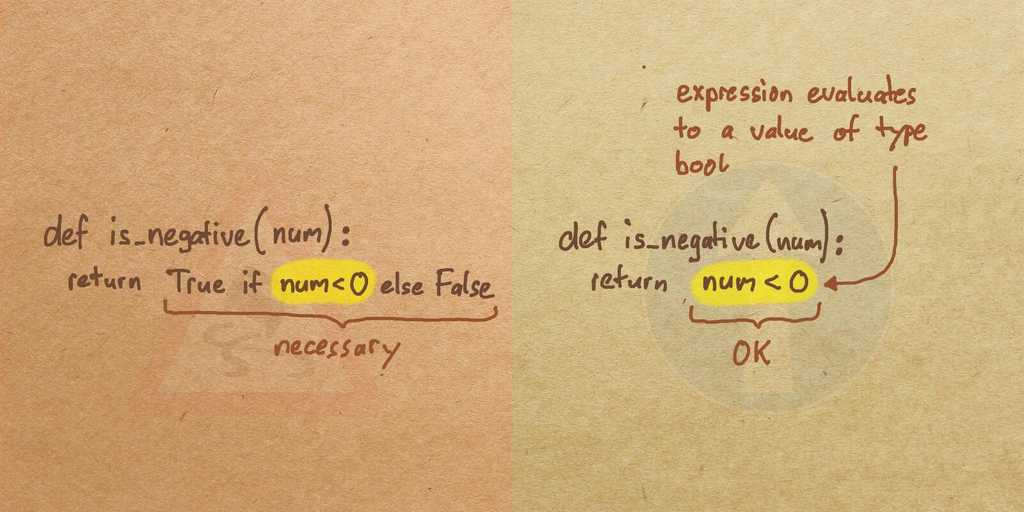 def is_negative(num):
return True if num<0 else False
necessary
expression evaluates
to a value of type
bool
def is_negative(num):
return num < 0
OK